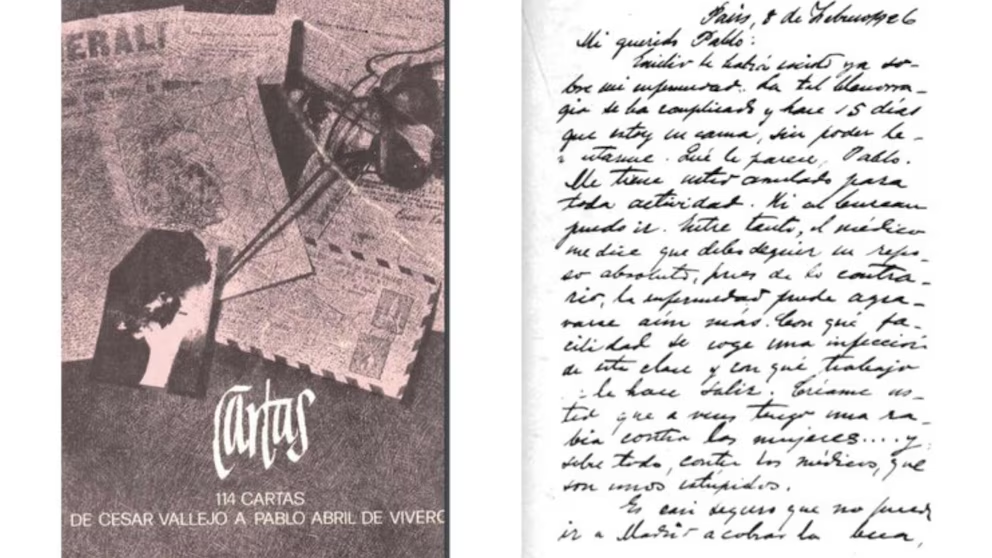 ERALI
Cartas
114 CARTAS
DE CESAR VALLEJO A PABLO ABRIL DE VIVERO
París, 8 de Febrero 926
Mi querido Pablo:
Emilio le habrá escrito ya so-
bre mi enfermedad. La tal blenorra-
gia se ha complicado y hace 15 días
que estoy en cama, sin poder le-
vantarme. Qué le parece, Pablo.
Me tiene usted anulado para
toda actividad. Ni al bureau
puedo ir. Entre tanto, el médico
me dice que debo seguir un repo-
so absoluto, pues de lo contra-
rio, la enfermedad puede agra-
varse aún más. Con qué fa-
cilidad se coge una infección
de esta clase y con qué trabajo
se le hace salir. Créame us-
ted que a veces tengo una ra-
bia contra las mujeres.... y
sobre todo, contra los médicos, que
son unos estúpidos.
Es casi seguro que no pueda
ir a Madrid a cobrar la beca,